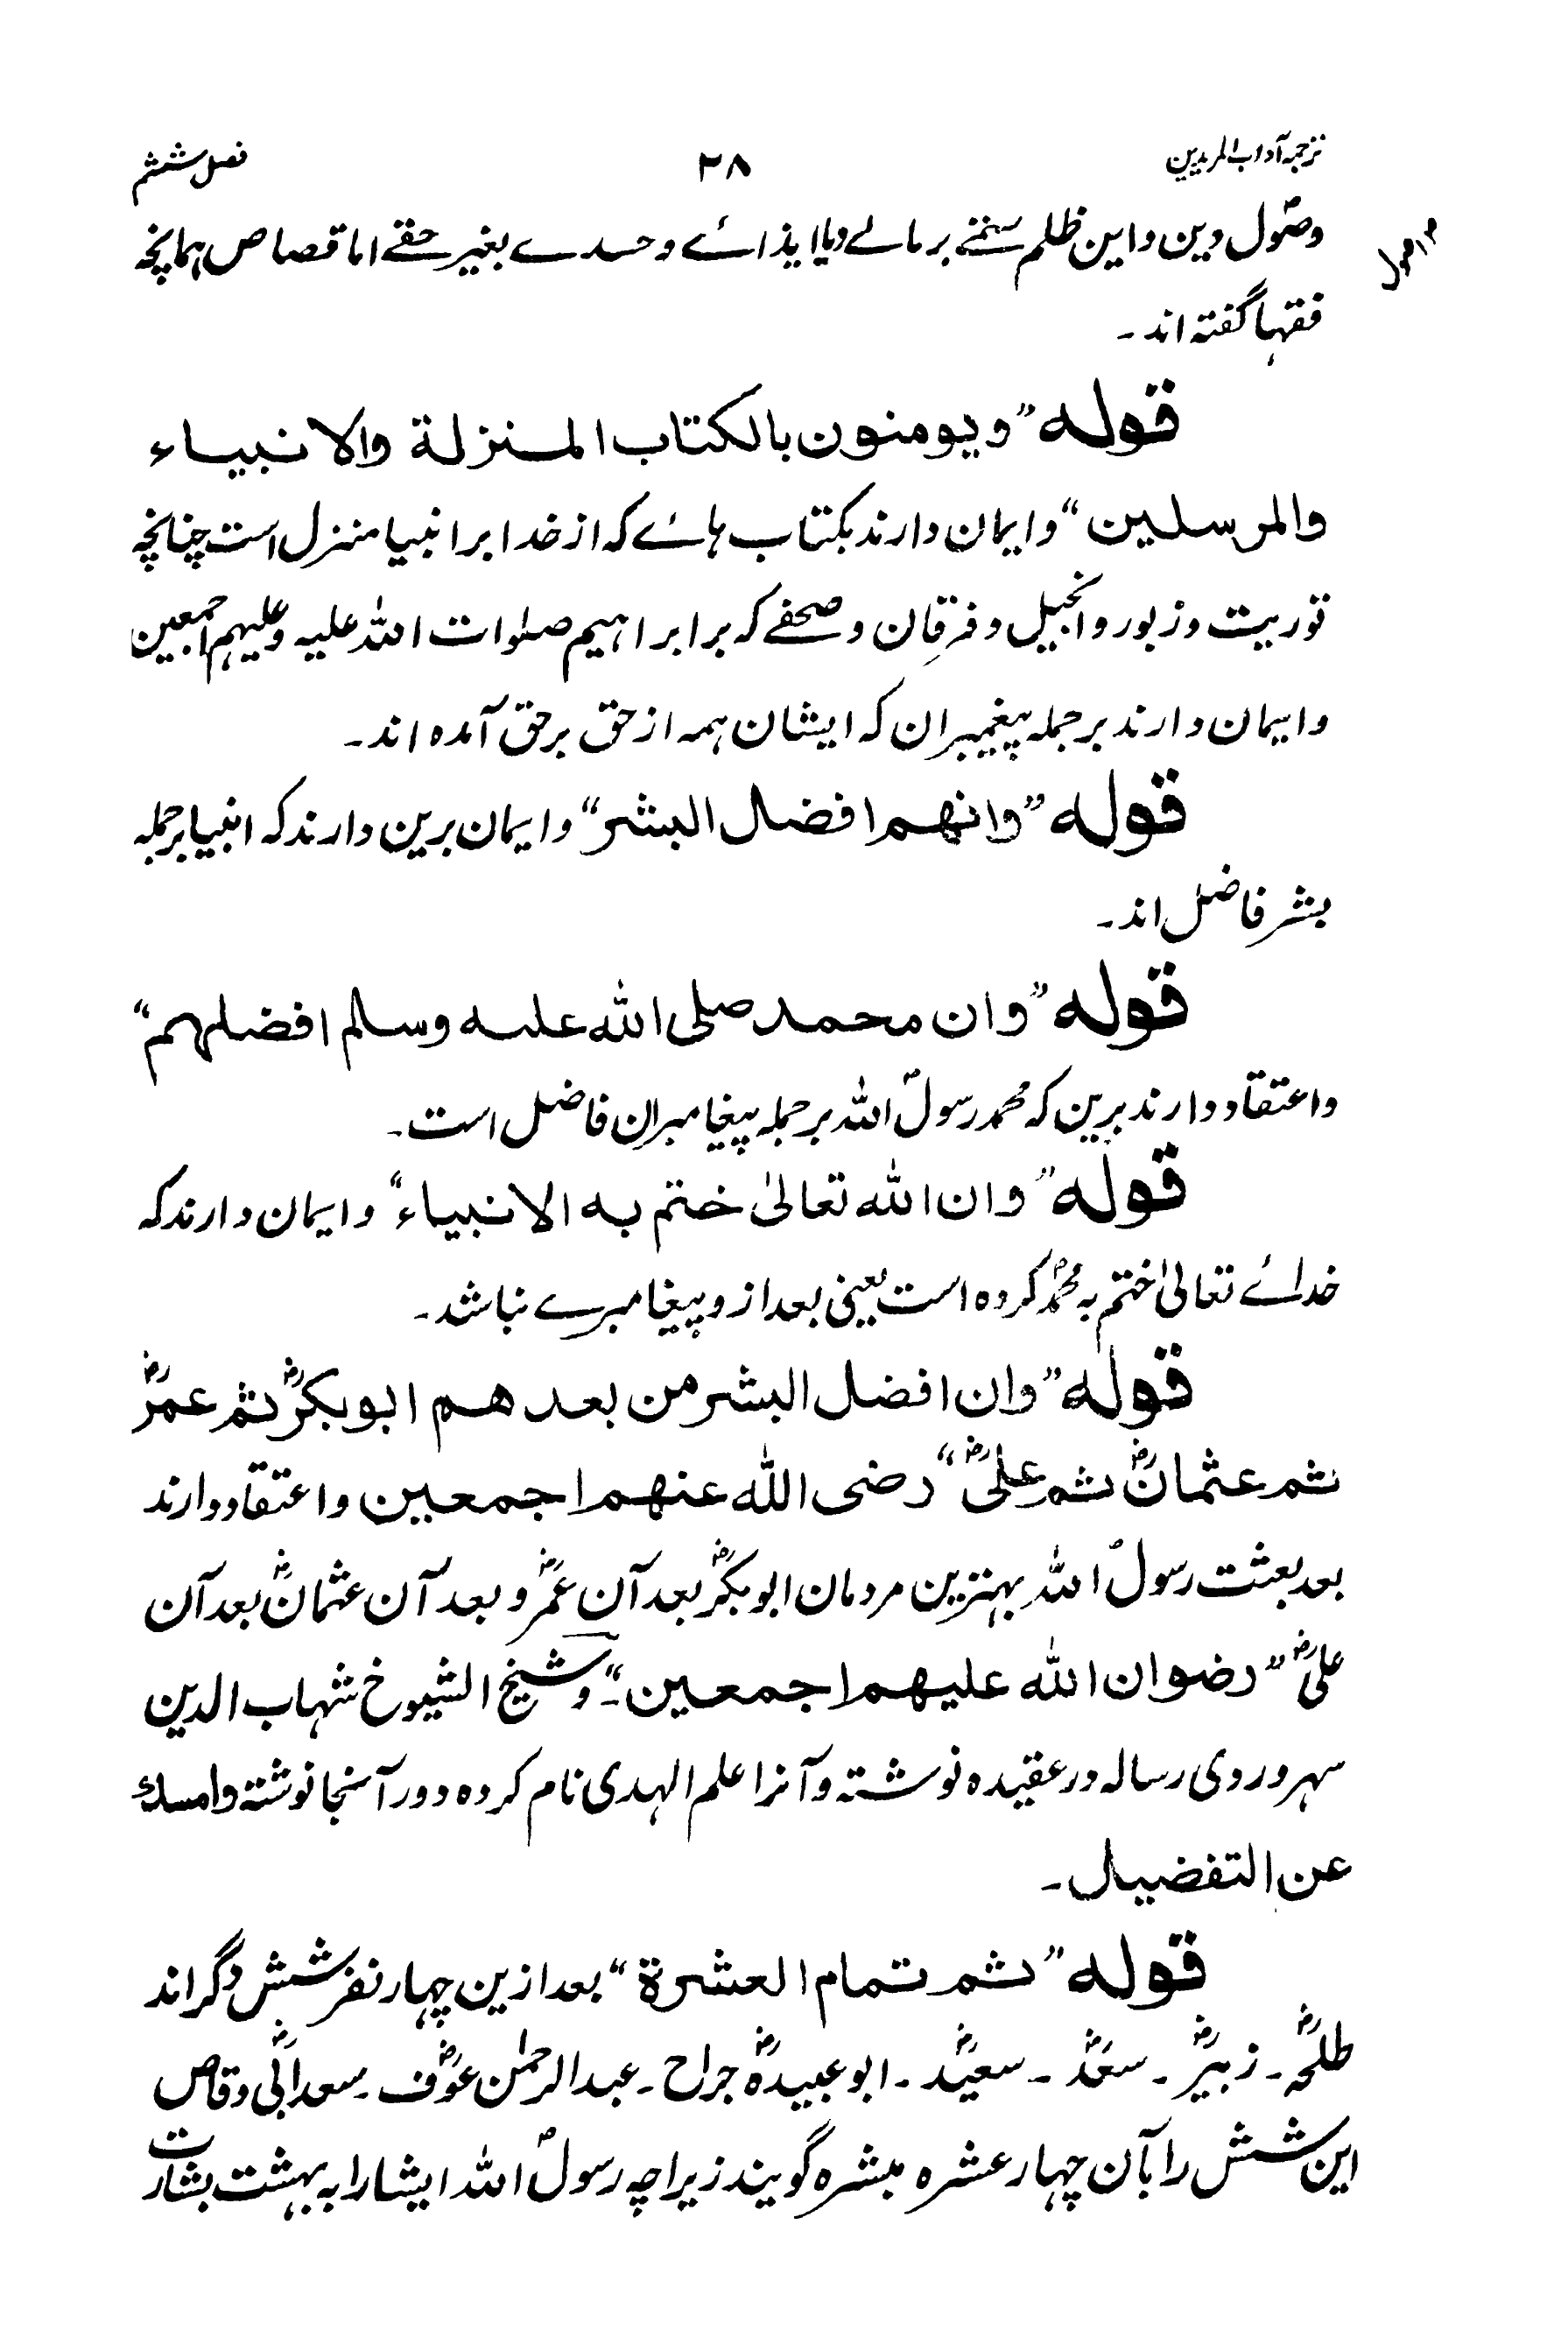 ترجمہ آداب المریدین ۲۸ فصل ششم
وصول دین و این ظلم ستمے بر مالے و یا ایذائے و حسدے بغیر حقے اما قصاص ہمانچہ
فقہا گفتہ اند۔
قوله ”ویومنون بالکتاب المنزلة والانبیاء
والمرسلین“ و ایمان دارند بکتاب ہائے کہ از خدا بر انبیا منزل است چنانچہ
توریت و زبور و انجیل و فرقان و صحفے کہ بر ابراہیم صلوات اللہ علیہ وعلیہم اجمعین
و ایمان دارند بر جملہ پیغمبران کہ ایشان ہمہ از حق بر حق آمدہ اند۔
قوله ”وانهم افضل البشر“ و ایمان برین دارند کہ انبیا بر جملہ
بشر فاضل اند۔
قوله ”وان محمد صلی اللہ علیه وسلم افضلهم“
و اعتقاد دارند برین کہ محمد رسولؐ اللہ بر جملہ پیغامبران فاضل است۔
قوله ”وان اللہ تعالیٰ ختم به الانبیاء“ و ایمان دارند کہ
خدائے تعالیٰ ختم بہ محمدؐ کردہ است یعنی بعد ازو پیغامبرے نباشد۔
قوله ”وان افضل البشر من بعدهم ابوبکرؓ ثم عمرؓ
ثم عثمانؓ ثم علیؓ“ رضی اللہ عنهم اجمعین و اعتقاد دارند
بعد بعثت رسولؐ اللہ بہترین مردمان ابوبکرؓ بعد آن عمرؓ و بعد آن عثمانؓ بعد آن
علیؓ ”رضوان اللہ علیهم اجمعین۔“ و شیخ الشیوخ شہاب الدین
سہروردی رسالہ در عقیدہ نوشتہ و آنرا علم الہدی نام کردہ و در آنجا نوشتہ و امسك
عن التفضیل۔
قوله ”ثم تمام العشرة“ بعد ازین چہار نفر شش دگر اند
طلحہؓ۔ زبیرؓ۔ سعدؓ۔ سعیدؓ۔ ابو عبیدہؓ جراح۔ عبدالرحمٰن عوفؓ۔ سعد ابیؓ وقاص
این شش را بآن چہار عشرہ مبشرہ گویند زیراچہ رسولؐ اللہ ایشارا بہ بہشت بشارت